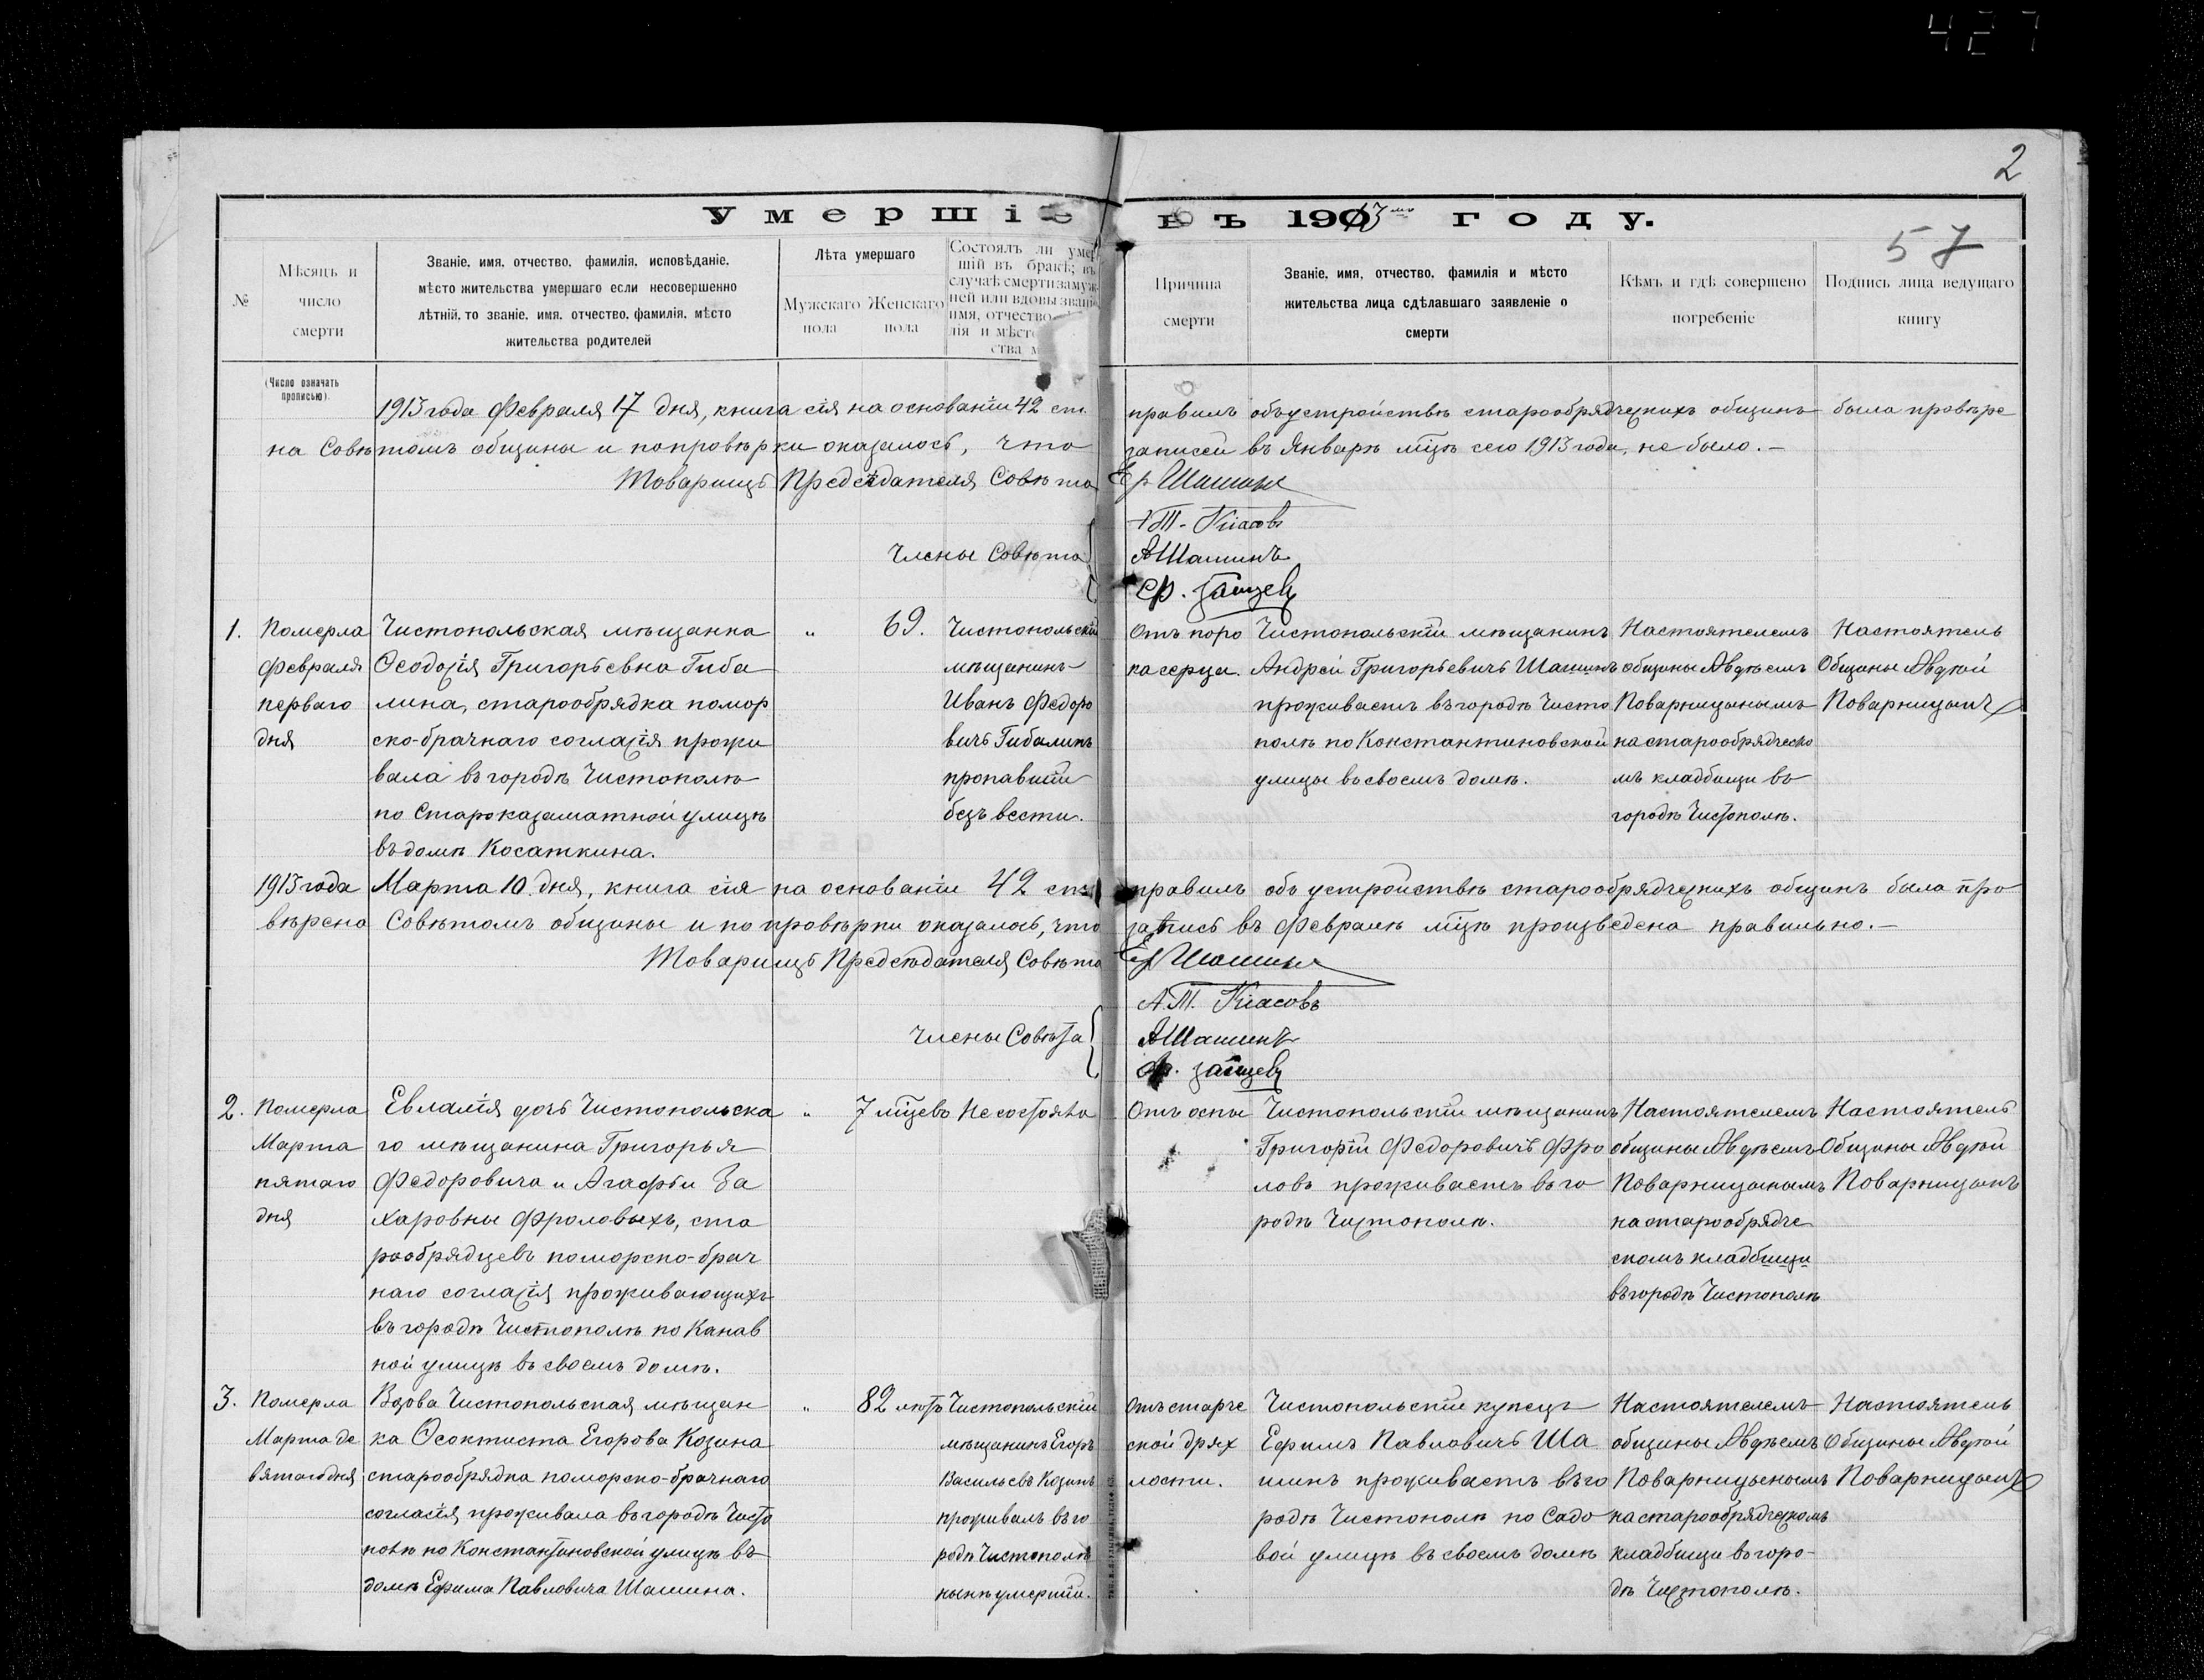 427
2
Умершіе въ 1913 мъ году.
57
№
Мѣсяцъ и
число
смерти
Званіе, имя, отчество, фамилія, исповѣданіе,
мѣсто жительства умершаго если несовершенно
лѣтній, то званіе, имя, отчество, фамилія, мѣсто
жительства родителей
Лѣта умершаго
Мужскаго
пола
Женскаго
пола
Состоялъ ли умер
шій въ бракѣ; въ
случаѣ смерти замуж
ней или вдовы званіе
имя, отчество
лія и мѣсто
ства
Причина
смерти
Званіе, имя, отчество, фамилія и мѣсто
жительства лица сдѣлавшаго заявленіе о
смерти
Кѣмъ и гдѣ совершено
погребеніе
Подпись лица ведущаго
книгу
(Число означать
прописью).
1913 года Февраля 17 дня, книга сія на основаніи 42 ст. правилъ объ устройствѣ старообрядческихъ общинъ была провѣре
на Совѣтомъ общины и попровѣрки оказалось, что записей въ Январѣ мѣцѣ сего 1913 года, не было.—
Товарищъ Предсѣдателя Совѣта Еф Шашин
Члены Совѣта
А Т. Класовъ
АШашинъ
Ф. Зайцевъ
1.
Померла
Февраля
перваго
дня
Чистопольская мѣщанка
Ѳеодосія Григорьевна Гиба
лина, старообрядка помор
ско-брачнаго согласія прожи
вала въ городѣ Чистополѣ
по Староказаматной улицѣ
въ домѣ Косаткина.
"
69.
Чистопольскій
мѣщанинъ
Иванъ Федоро
вичъ Гибалинъ
пропавшій
безъ вести.
Отъ поро
ка серца.
Чистопольскій мѣщанинъ
Андрей Григорьевичъ Шашинъ
проживаетъ въ городѣ Чисто
полѣ по Константиновской
улицы въ своемъ домѣ.
Настоятелемъ
общины Авдѣемъ
Поварницынымъ
на старообрядческо
мъ кладбищи въ
городѣ Чистополѣ.
Настоятель
Общины Авдѣй
Поварницынъ
1913 года Марта 10 дня, книга сія на основаніи 42 ст. правилъ объ устройствѣ старообрядческихъ общинъ была про
вѣрена Совѣтомъ общины и по провѣрки оказалось, что запись въ Февралѣ мѣцѣ произведена правильно.—
Товарищъ Предсѣдателя Совѣта Еф Шашин
Члены Совѣта
А.Т. Класовъ
АШашинъ
Ф. Зайцевъ
2.
Померла
Марта
пятаго
дня
Евлалія дочь Чистопольска
го мѣщанина Григорья
Федоровича и Агафьи За
харовны Фроловыхъ, ста
рообрядцевъ поморско-брач
наго согласія проживающихъ
въ городѣ Чистополѣ по Канав
ной улицѣ въ своемъ домѣ.
"
7 мѣцевъ
Не состояла
Отъ оспы
Чистопольскій мѣщанинъ
Григорій Федоровичъ Фро
ловъ проживаетъ въ го
родѣ Чистополѣ.
Настоятелемъ
общины Авдѣемъ
Поварницынымъ
на старообрядче
скомъ кладбищи
въ городѣ Чистополѣ
Настоятель
Общины Авдѣй
Поварницынъ
3.
Померла
Марта де
вятаго дня
Вдова Чистопольская мѣщан
ка Ѳеоктиста Егорова Козина
старообрядка поморско-брачнаго
согласія, проживала въ городѣ Чисто
полѣ по Константиновской улицѣ въ
домѣ Ефима Павловича Шашина.
"
82 лѣтъ
Чистопольскій
мѣщанинъ Егоръ
Васильевъ Козинъ
проживалъ въ го
родѣ Чистополѣ
нынѣ умершій.
Отъ старче
ской дрях
лости.
Чистопольскій купецъ
Ефимъ Павловичъ Ша
шинъ проживаетъ въ го
родѣ Чистополѣ по Садо
вой улицѣ въ своемъ домѣ
Настоятелемъ
общины Авдѣемъ
Поварницынымъ
на старообрядческомъ
кладбищи въ горо-
дѣ Чистополѣ.
Настоятель
Общины Авдѣй
Поварницынъ